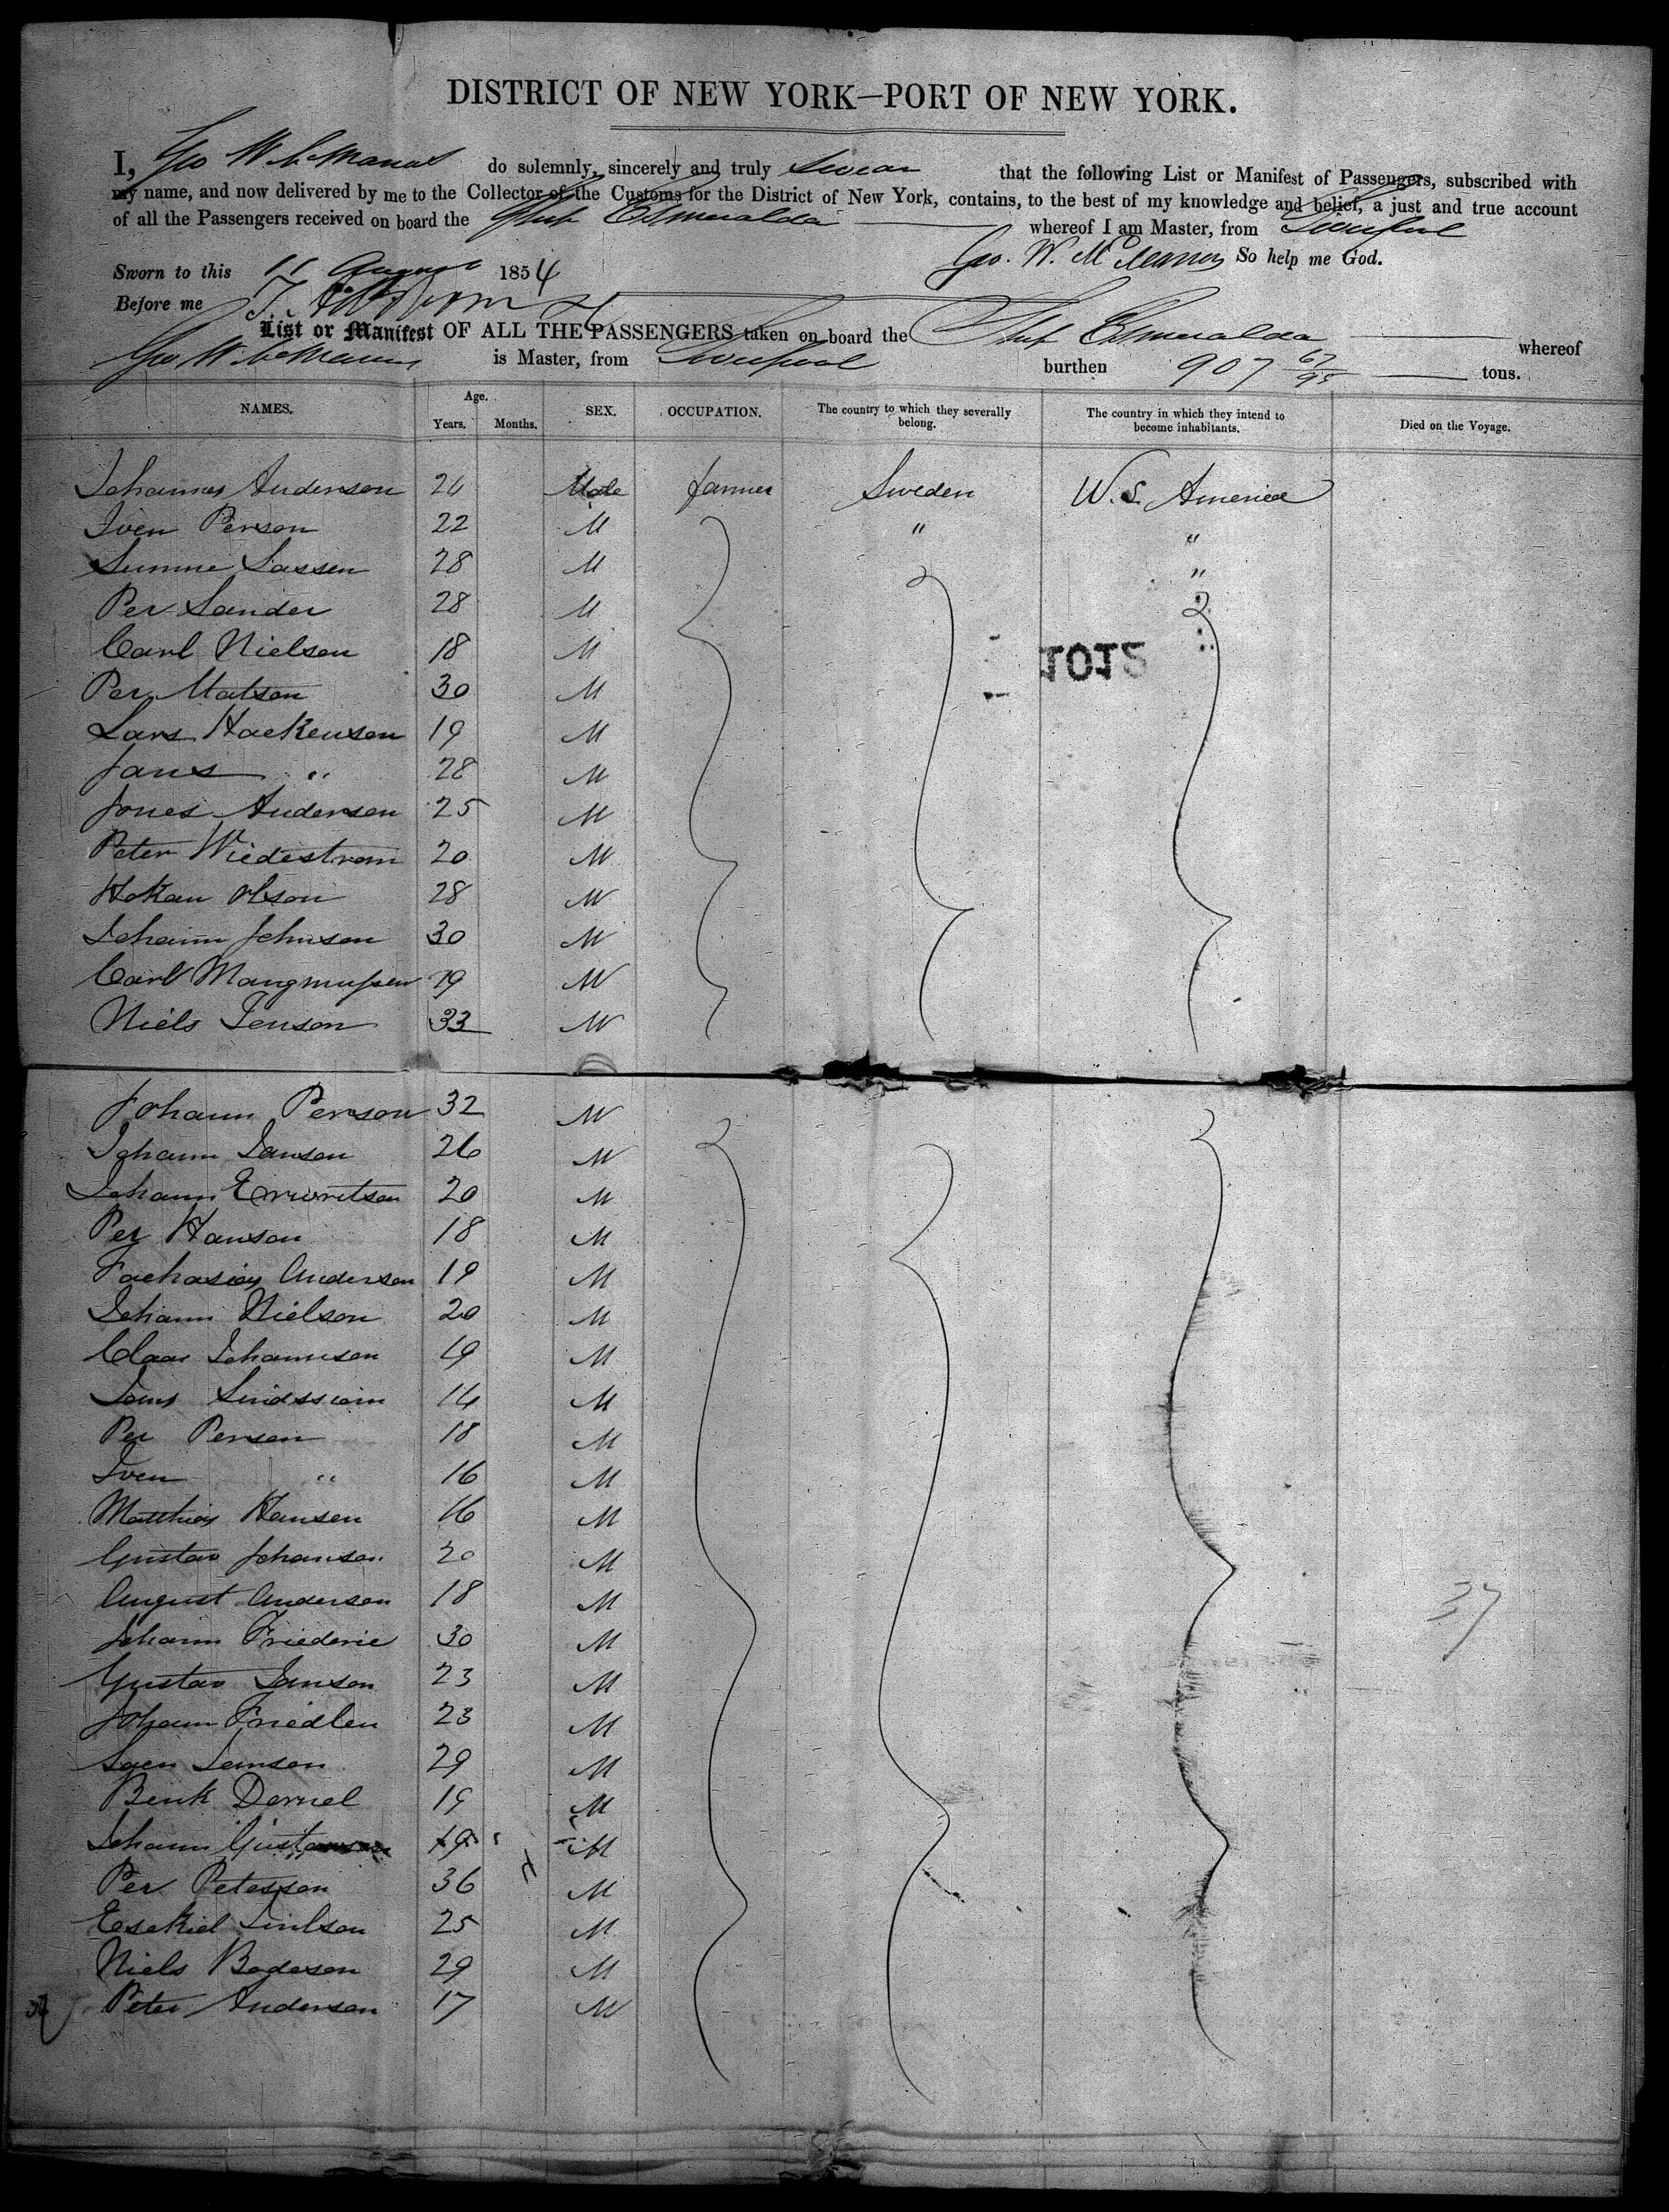 DISTRICT OF NEW YORK—PORT OF NEW YORK.
I, Geo W McManus do solemnly, sincerely and truly swear that the following List or Manifest of Passengers, subscribed with
my name, and now delivered by me to the Collector of the Customs for the District of New York, contains, to the best of my knowledge and belief, a just and true account
of all the Passengers received on board the Ship Esmeralda whereof I am Master, from Liverpool
Sworn to this 11 August 1854 Geo. W. So help me God.
Before me
List or Manifest OF ALL THE PASSENGERS taken on board the Ship Esmeralda whereof
Geo W McManus is Master, from Liverpool burthen 907 67/95 tons.
NAMES. Age. Years. Months. SEX. OCCUPATION. The country to which they severally belong. The country in which they intend to become inhabitants. Died on the Voyage.
Johannes Anderson 26 Male farmer Sweden U.S. America
Sven Person 22 M " "
Lassen 28 M "
Per Sander 28 M
Carl Nielsen 18 M
1015
Per Matson 30 M
Lars Hackenson 19 M
Jans " 28 M
Jones Anderson 25 M
Peter Wiedestrom 20 M
Hokan Olson 28 M
Johann Johnson 30 M
Carl Mangmussen 19 M
Niels Jenson 33 M
Johann Person 32 M
Johann Janson 26 M
Johann 20 M
Per Hanson 18 M
Zacharias Anderson 19 M
Johann Nielson 20 M
Claas Johannson 19 M
14 M
Per Person 18 M
Sven " 16 M
Matthias Hansen 16 M
Gustav Johanson 20 M
August Anderson 18 M
Johann Friederic 30 M
Gustav Janson 23 M
37
Johann Friedlen 23 M
Janson 29 M
Benk Dernel 19 M
Johann 19 M
Per Peterson 36 M
Esekiel 25 M
Niels Bodeson 29 M
Peter Anderson 17 M